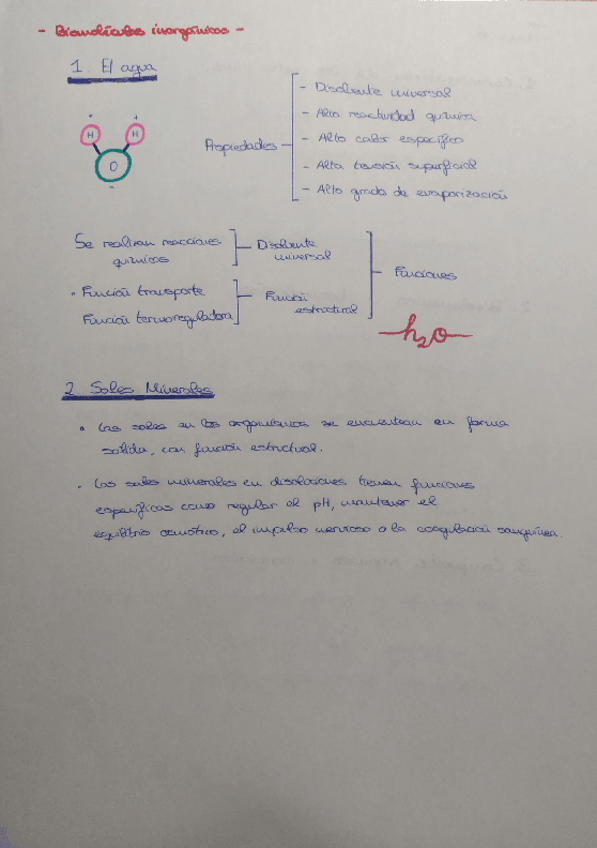 - Biomoléculas inorgánicas -
1. El agua
+ +
H H
O
-
Propiedades
- Disolvente universal
- Alta reactividad química
- Alto calor específico
- Alta tensión superficial
- Alto grado de evaporización
Se realizan reacciones
químicas
Disolvente
universal
Funciones
• Función transporte
Función termoreguladora
Función
estructural
h2o
2 Sales Minerales
• Las sales en los organismos se encuentran en forma
solida, con función estructural.
• Las sales minerales en disoluciones tienen funciones
específicas como regular el pH, mantener el
equilibrio osmótico, el impulso nervioso o la coagulación sanguínea.